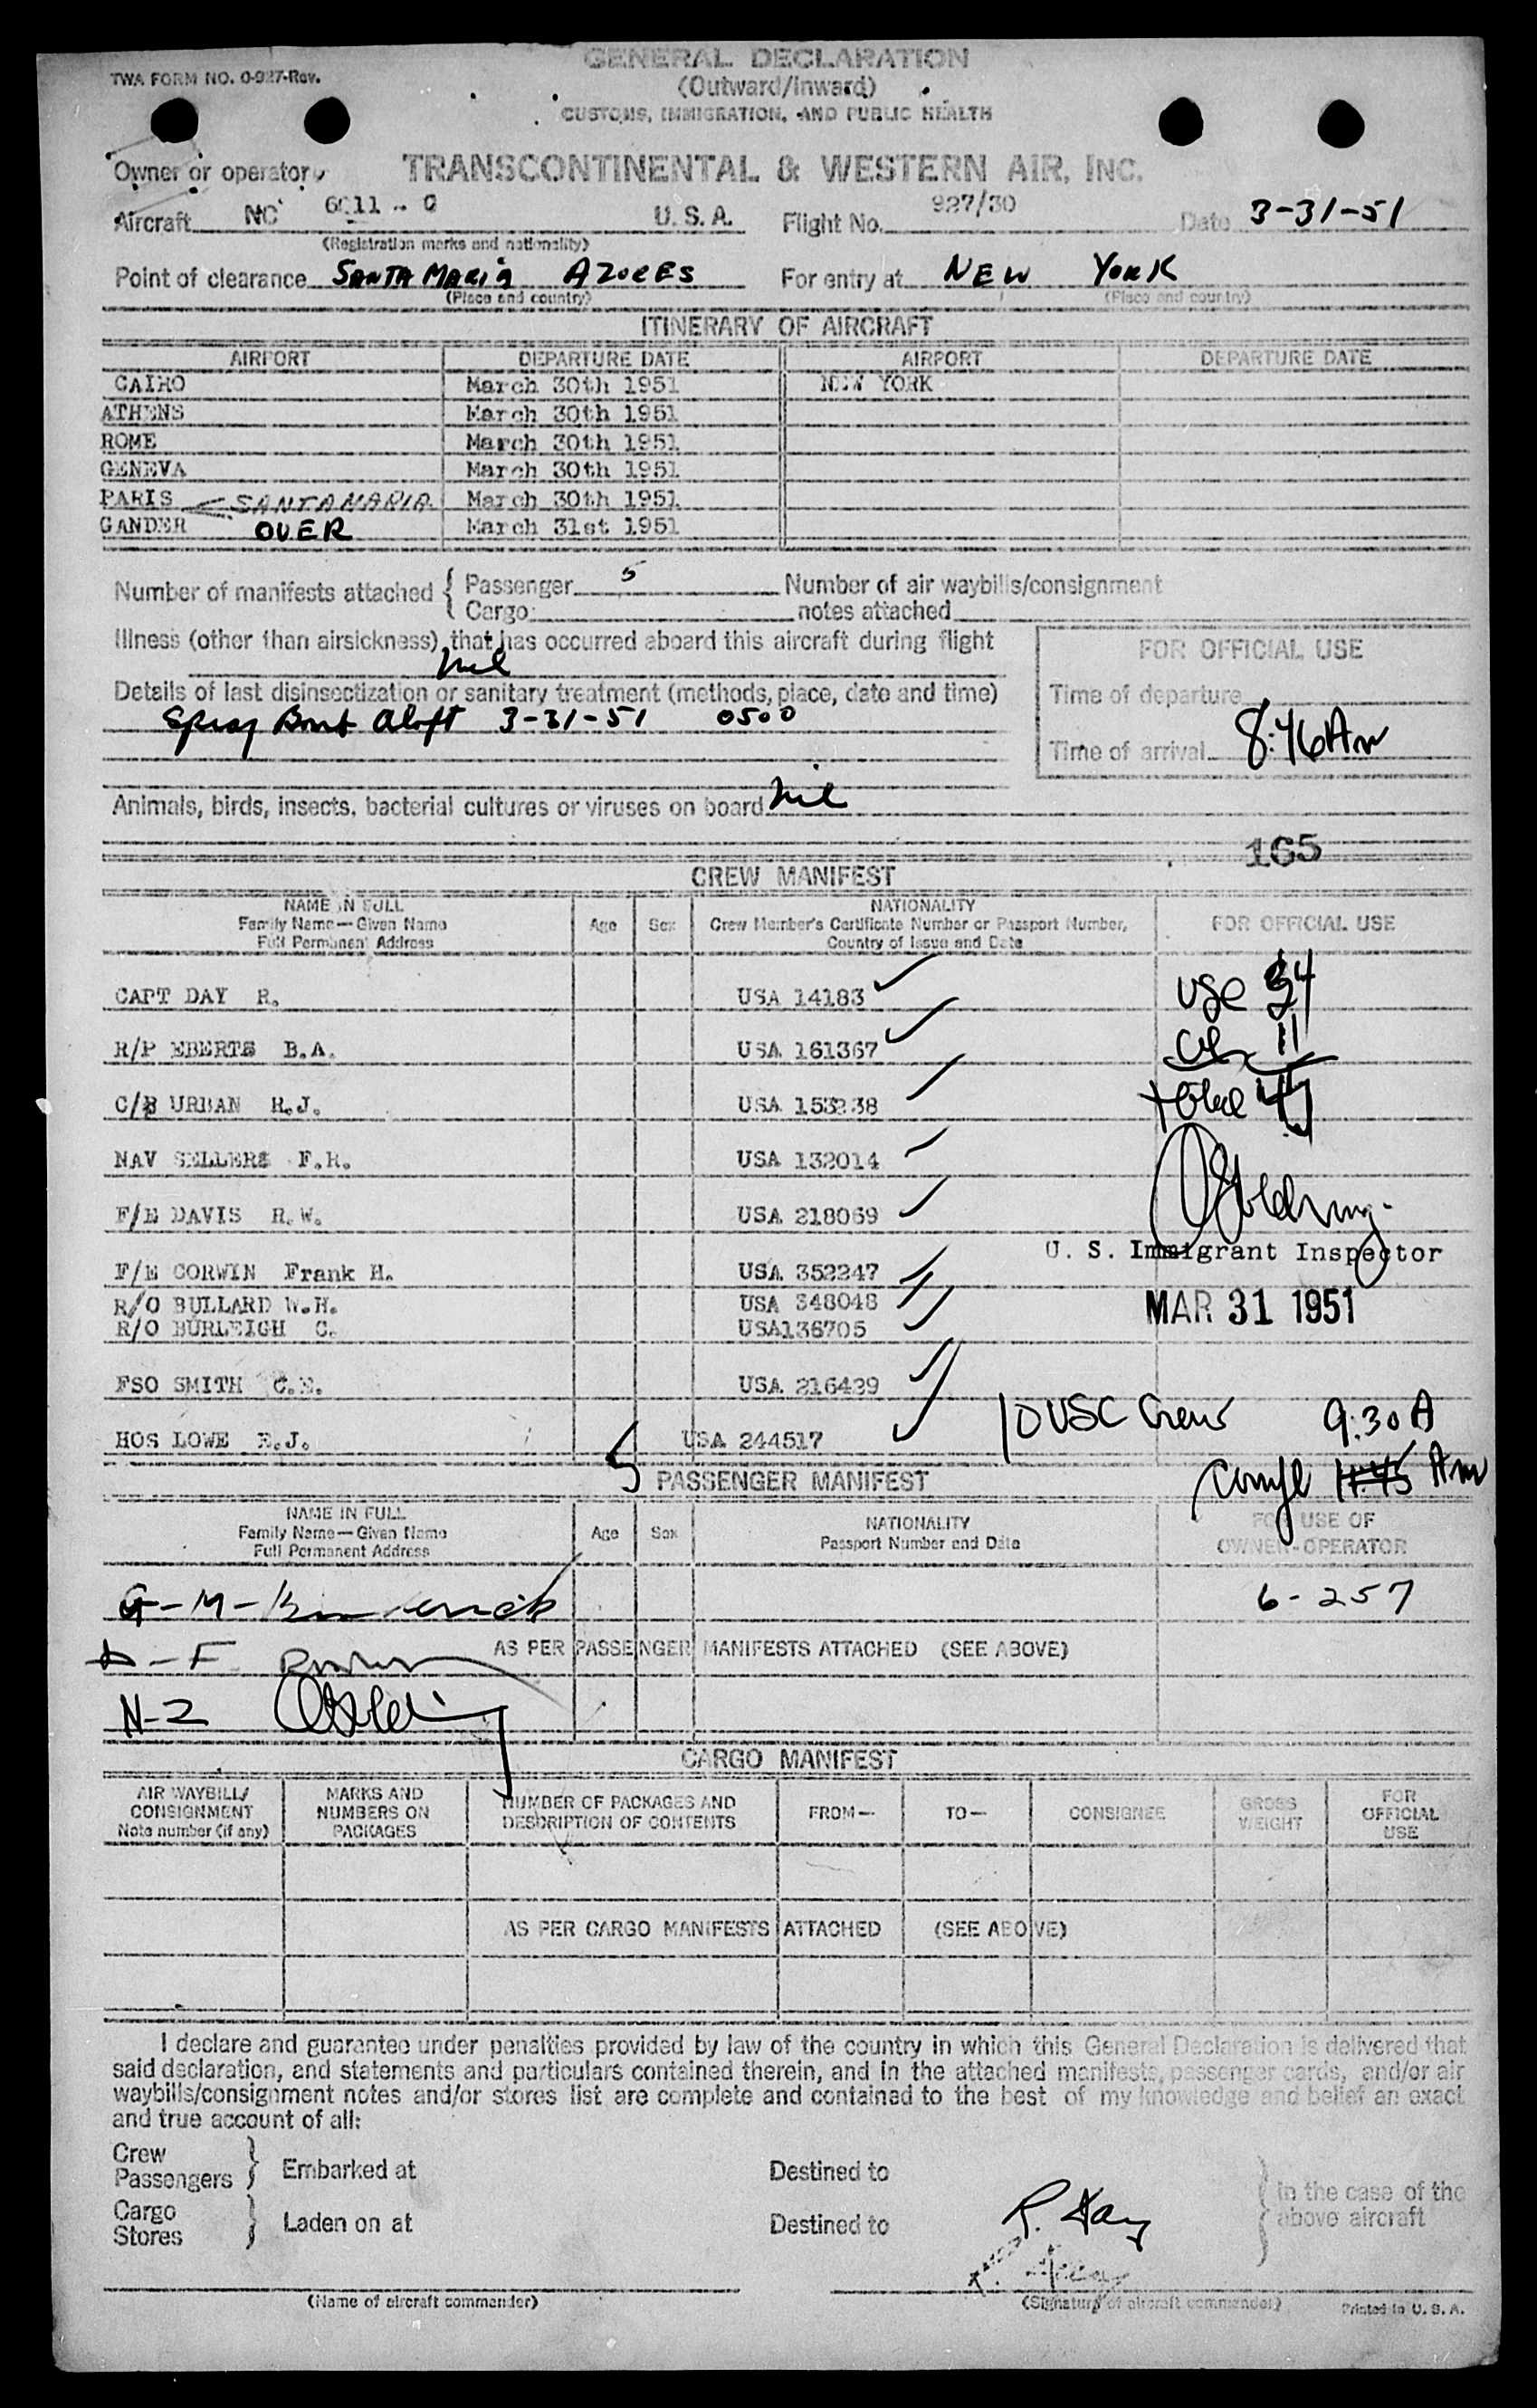 GENERAL DECLARATION
TWA FORM NO. 0-927-Rev.
(Outward/Inward)
CUSTOMS, IMMIGRATION, AND PUBLIC HEALTH
Owner or operator TRANSCONTINENTAL & WESTERN AIR, INC.
Aircraft NC 6011 - C U. S. A. Flight No. 927/30 Date 3-31-51
(Registration marks and nationality)
Point of clearance SANTA MARIA AZORES For entry at NEW YORK
(Place and country) (Place and country)
ITINERARY OF AIRCRAFT
AIRPORT DEPARTURE DATE AIRPORT DEPARTURE DATE
CAIRO March 30th 1951 NEW YORK
ATHENS March 30th 1951
ROME March 30th 1951
GENEVA March 30th 1951
PARIS SANTA MARIA March 30th 1951
GANDER OVER March 31st 1951
Number of manifests attached { Passenger 5 Number of air waybills/consignment
Cargo: notes attached
Illness (other than airsickness) that has occurred aboard this aircraft during flight FOR OFFICIAL USE
nil
Details of last disinsectization or sanitary treatment (methods, place, date and time) Time of departure
Spray Bomb aloft 3-31-51 0500
Time of arrival 8:46 Am
Animals, birds, insects, bacterial cultures or viruses on board nil
165
CREW MANIFEST
NAME IN FULL NATIONALITY
Family Name—Given Name Age Sex Crew Member's Certificate Number or Passport Number, FOR OFFICIAL USE
Full Permanent Address Country of Issue and Date
CAPT DAY R. USA 14183 usc 34
R/P EBERTS B.A. USA 161367 11
C/B URBAN R.J. USA 153238 total 45
NAV SELLERS F.R. USA 132014
F/E DAVIS R.W. USA 218069
U. S. Immigrant Inspector
F/E CORWIN Frank H. USA 352247
R/O BULLARD W.H. USA 348048 MAR 31 1951
R/O BURLEIGH C. USA136705
FSO SMITH C.E. USA 216439
10 USC Crew 9:30 A
HOS LOWE E.J. USA 244517
5 PASSENGER MANIFEST Compl 11:45 Am
NAME IN FULL NATIONALITY FOR USE OF
Family Name—Given Name Age Sex Passport Number and Date OWNER-OPERATOR
Full Permanent Address
G-M- 6-257
D-F AS PER PASSENGER MANIFESTS ATTACHED (SEE ABOVE)
N-Z
CARGO MANIFEST
AIR WAYBILL/ MARKS AND NUMBER OF PACKAGES AND FROM— TO— CONSIGNEE GROSS FOR
CONSIGNMENT NUMBERS ON DESCRIPTION OF CONTENTS WEIGHT OFFICIAL
Note number (if any) PACKAGES USE
AS PER CARGO MANIFESTS ATTACHED (SEE ABOVE)
I declare and guarantee under penalties provided by law of the country in which this General Declaration is delivered that
said declaration, and statements and particulars contained therein, and in the attached manifests, passenger cards, and/or air
waybills/consignment notes and/or stores list are complete and contained to the best of my knowledge and belief an exact
and true account of all:
Crew
Passengers } Embarked at Destined to In the case of the
Cargo above aircraft
Stores } Laden on at Destined to R. Day
(Name of aircraft commander) (Signature of aircraft commander) Printed in U. S. A.